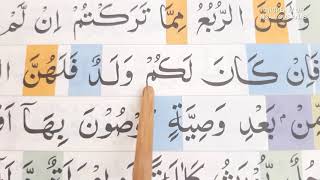 وَلَهُنَّ الرُّبُعُ مِمَّا تَرَكْتُمْ اِنْ لَّمْ
فَاِنْ كَانَ لَكُمْ وَلَدٌ فَلَهُنَّ
مِّنْ بَعْدِ وَصِيَّةٍ تُوْصُوْنَ بِهَآ
يُّوْرَثُ كَلٰلَةً